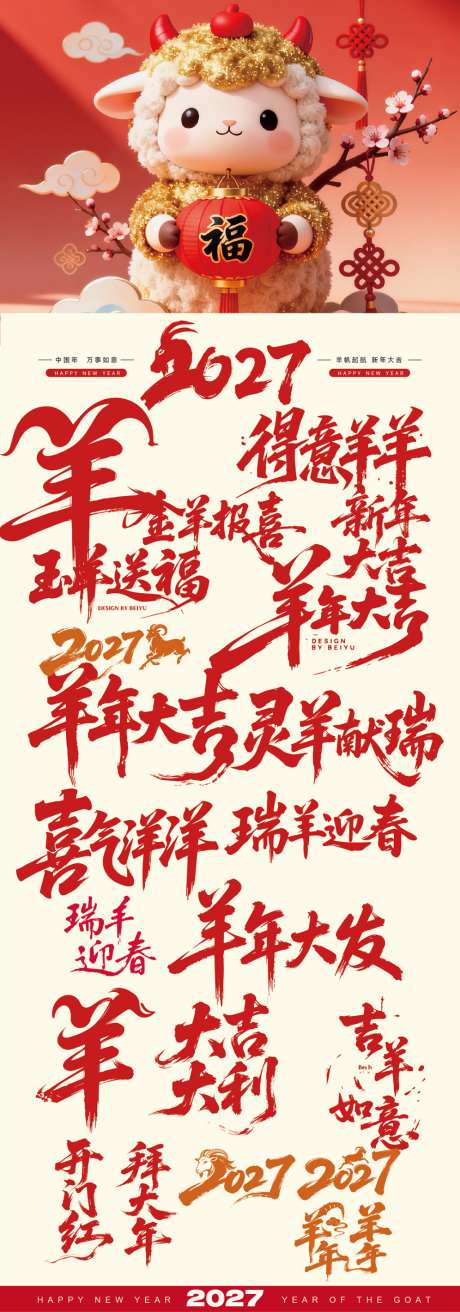 福
2027
中国年 万事如意
HAPPY NEW YEAR
羊帆起航 新年大吉
HAPPY NEW YEAR
羊
得意羊羊
新年
大吉
金羊报喜
玉羊送福
DESIGN BY BEIYU
羊年大吉
DESIGN
BY BEIYU
2027
羊年大吉
灵羊献瑞
喜气洋洋
瑞羊迎春
瑞羊
迎春
羊年大发
羊
大吉
大利
吉羊
如意
开门红
拜大年
2027
2027
羊年
羊年
HAPPY NEW YEAR 2027 YEAR OF THE GOAT